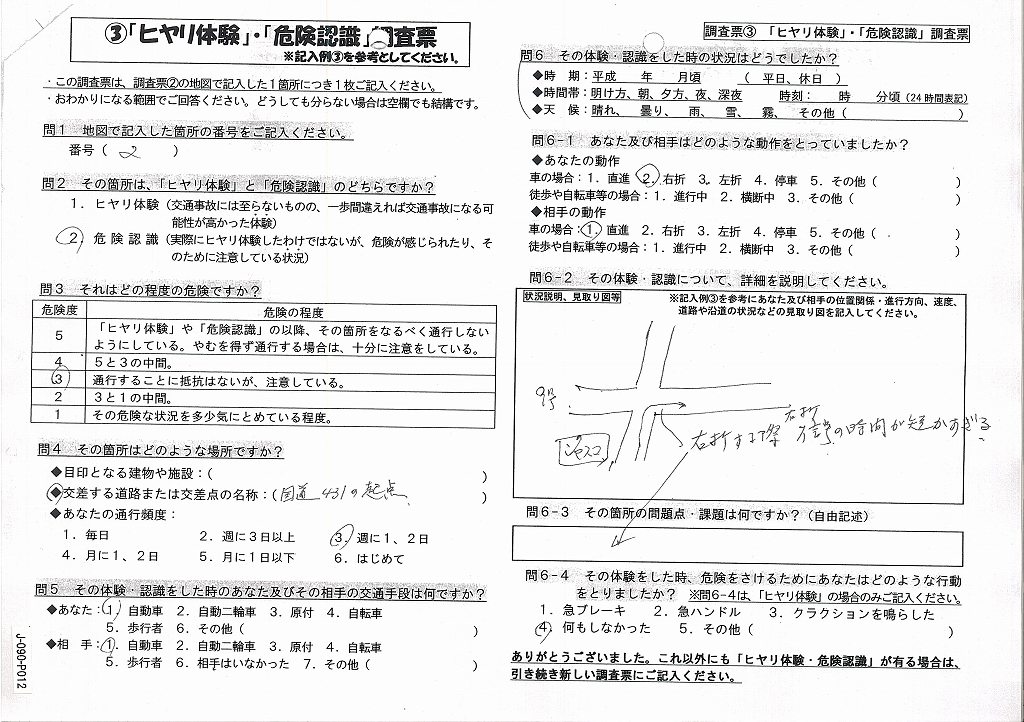 ③「ヒヤリ体験」・「危険認識」調査票
※記入例③を参考としてください。
・この調査票は、調査票②の地図で記入した1箇所につき1枚ご記入ください。
・おわかりになる範囲でご回答ください。どうしても分らない場合は空欄でも結構です。
問1 地図で記入した箇所の番号をご記入ください。
番号( 2 )
問2 その箇所は、「ヒヤリ体験」と「危険認識」のどちらですか?
1.ヒヤリ体験(交通事故には至らないものの、一歩間違えれば交通事故になる可
能性が高かった体験)
2.危険認識(実際にヒヤリ体験したわけではないが、危険が感じられたり、そ
のために注意している状況)
問3 それはどの程度の危険ですか?
危険度 危険の程度
5 「ヒヤリ体験」や「危険認識」の以降、その箇所をなるべく通行しない
ようにしている。やむを得ず通行する場合は、十分に注意をしている。
4 5と3の中間。
3 通行することに抵抗はないが、注意している。
2 3と1の中間。
1 その危険な状況を多少気にとめている程度。
問4 その箇所はどのような場所ですか?
◆目印となる建物や施設:( )
◆交差する道路または交差点の名称:(国道431の起点 )
◆あなたの通行頻度:
1.毎日 2.週に3日以上 3.週に1、2日
4.月に1、2日 5.月に1日以下 6.はじめて
問5 その体験・認識をした時のあなた及びその相手の交通手段は何ですか?
◆あなた:1.自動車 2.自動二輪車 3.原付 4.自転車
5.歩行者 6.その他( )
◆相 手:1.自動車 2.自動二輪車 3.原付 4.自転車
5.歩行者 6.相手はいなかった 7.その他( )
J-090-P012
調査票③ 「ヒヤリ体験」・「危険認識」調査票
問6 その体験・認識をした時の状況はどうでしたか?
◆時 期:平成 年 月頃 ( 平日、休日 )
◆時間帯:明け方、朝、夕方、夜、深夜 時刻: 時 分頃(24時間表記)
◆天 候:晴れ、 曇り、 雨、 雪、 霧、 その他( )
問6-1 あなた及び相手はどのような動作をとっていましたか?
◆あなたの動作
車の場合:1.直進 2.右折 3.左折 4.停車 5.その他( )
徒歩や自転車等の場合:1.進行中 2.横断中 3.その他( )
◆相手の動作
車の場合:1.直進 2.右折 3.左折 4.停車 5.その他( )
徒歩や自転車等の場合:1.進行中 2.横断中 3.その他( )
問6-2 その体験・認識について、詳細を説明してください。
状況説明、見取り図等
※記入例③を参考にあなた及び相手の位置関係・進行方向、速度、
道路や沿道の状況などの見取り図を記入してください。
9号
ジャスコ
右折
右折する際 信号の時間が短かすぎる
問6-3 その箇所の問題点・課題は何ですか?(自由記述)
問6-4 その体験をした時、危険をさけるためにあなたはどのような行動
をとりましたか? ※問6-4は、「ヒヤリ体験」の場合のみご記入ください。
1.急ブレーキ 2.急ハンドル 3.クラクションを鳴らした
4.何もしなかった 5.その他( )
ありがとうございました。これ以外にも「ヒヤリ体験・危険認識」が有る場合は、
引き続き新しい調査票にご記入ください。